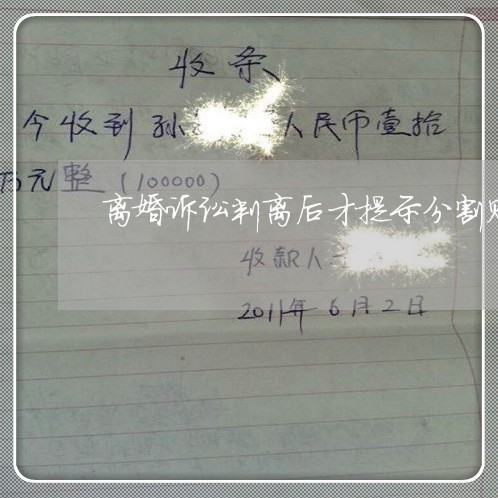 收条
今收到孙 人民币壹拾
万元整(100000)
离婚诉讼判离后才提示分割财
收款人
2011年6月2日